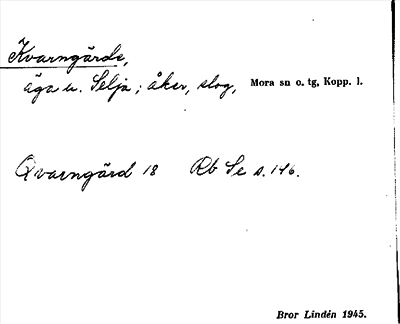 Kvarngärde,
äga u. Selja; åker, slog, Mora sn o. tg, Kopp. l.
Qvarngärd 18 Rb Se s. 146.
Bror Lindén 1945.